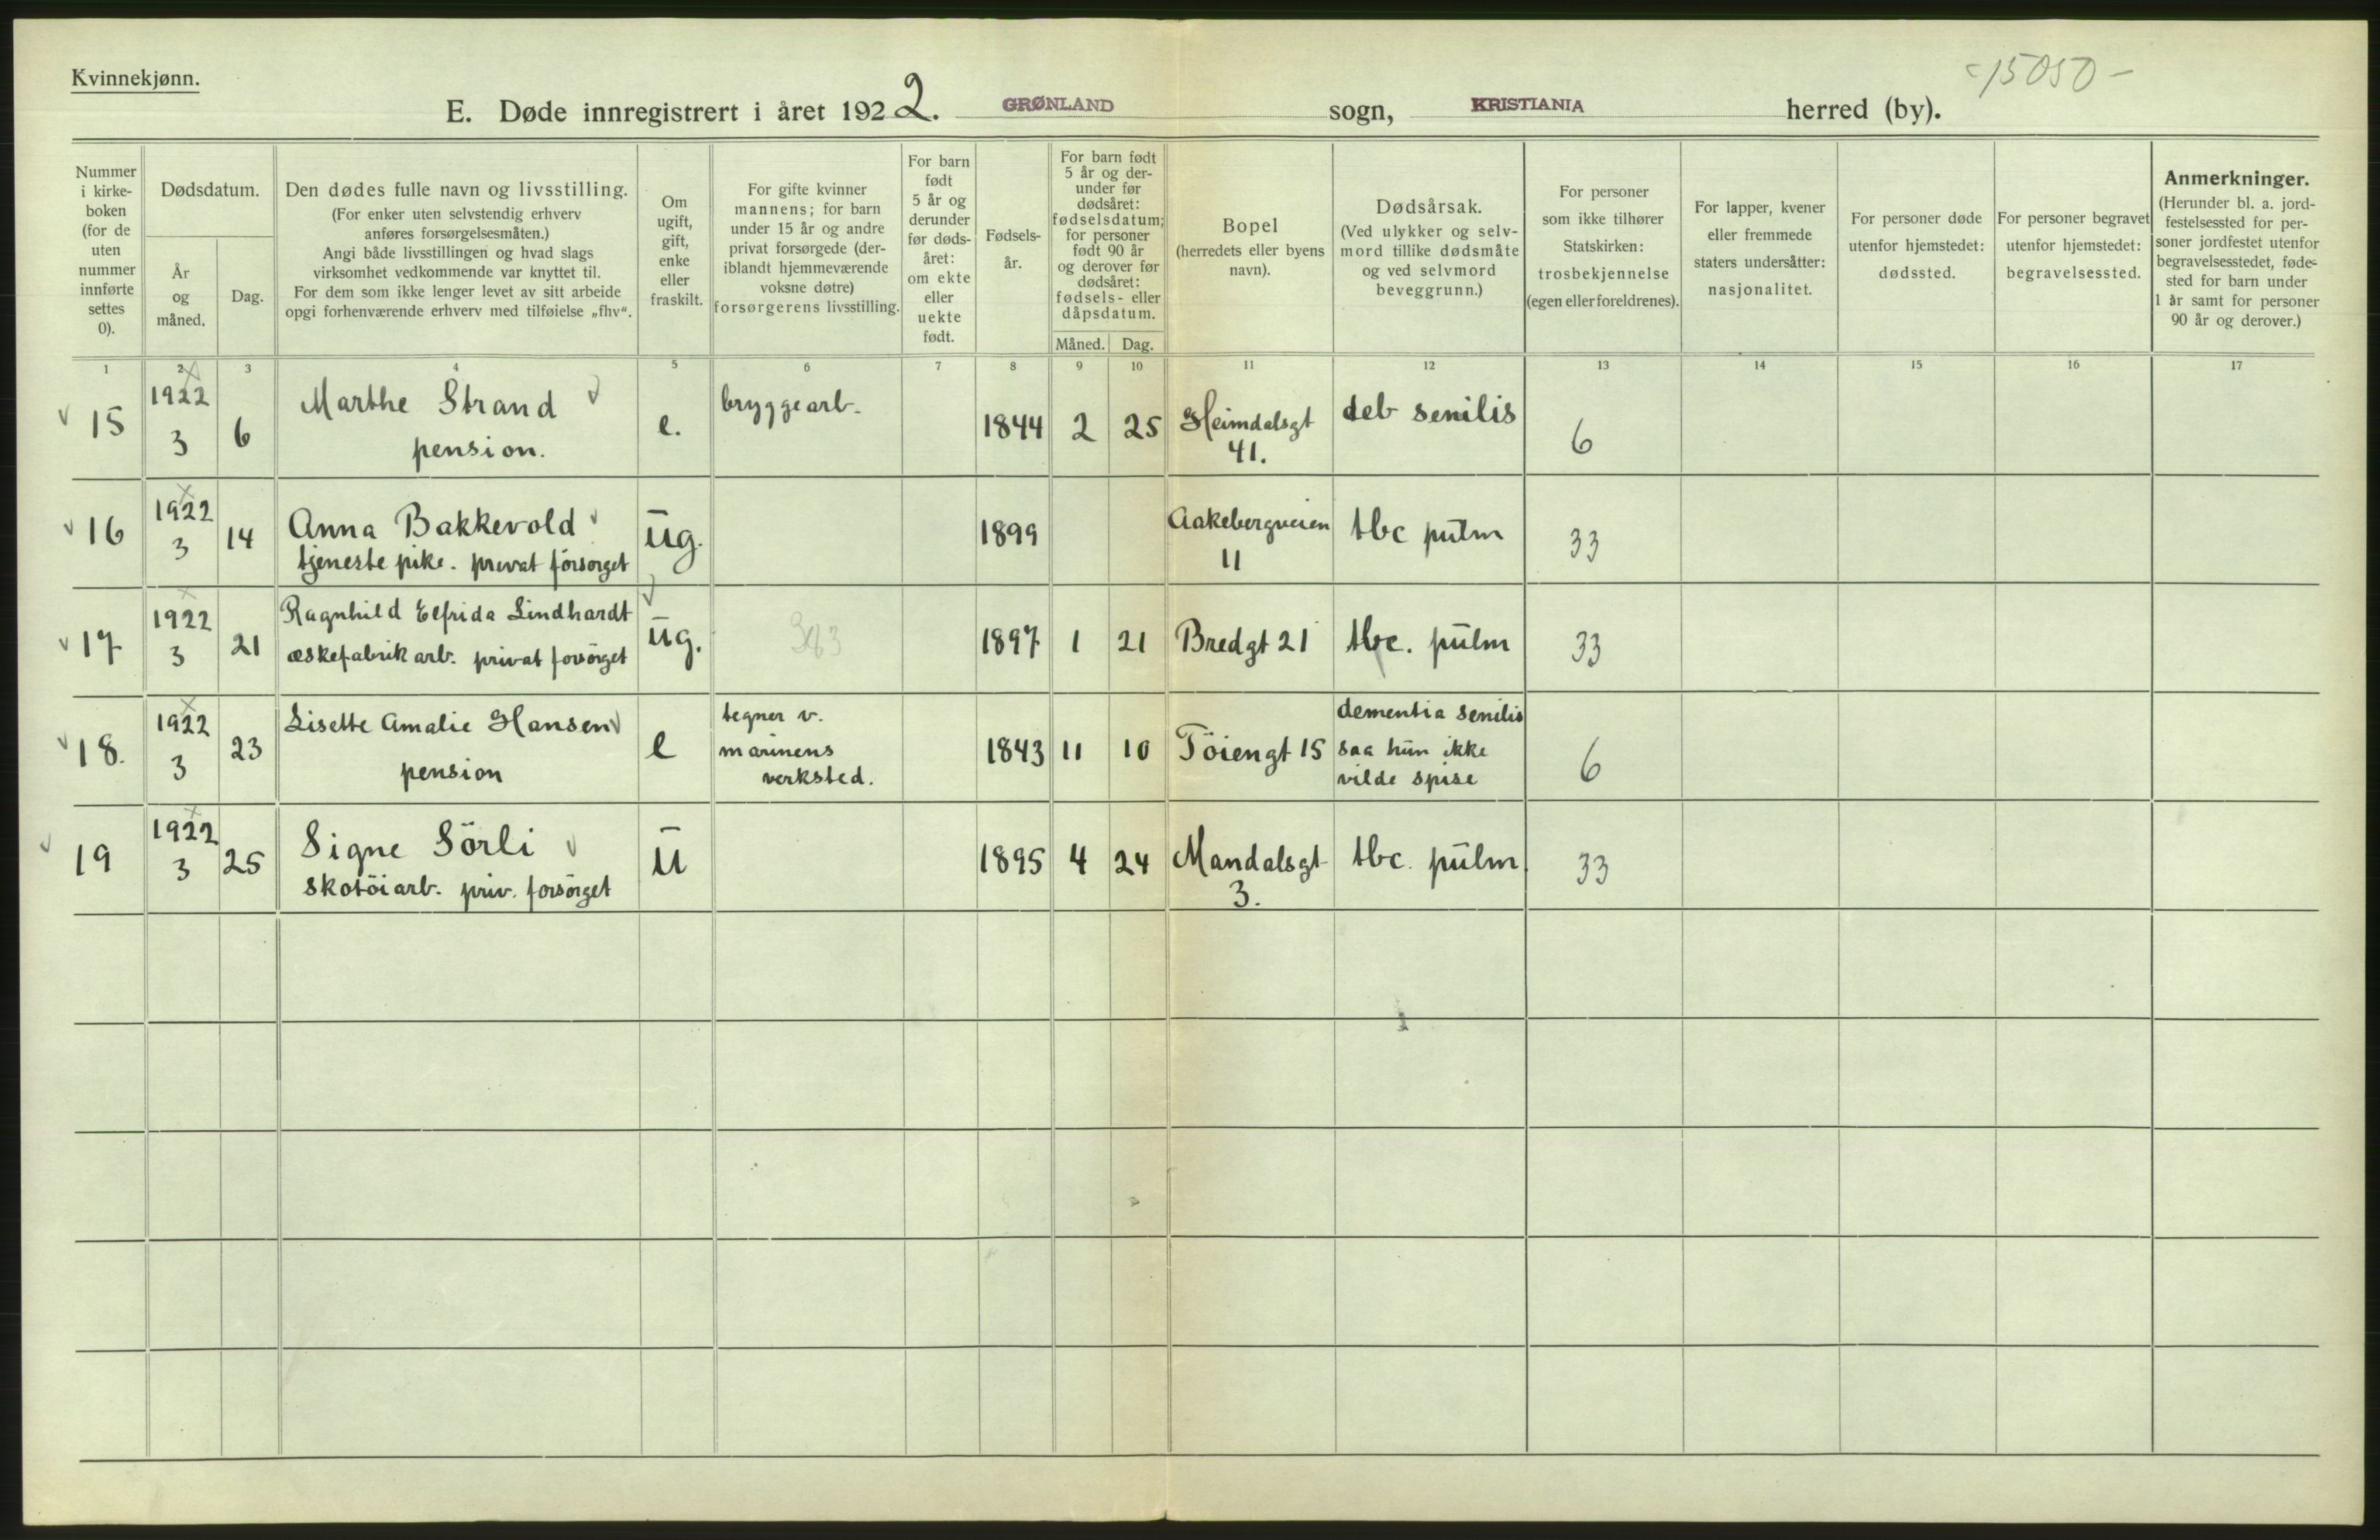 Kvinnekjønn.
15050 –
E. Døde innregistrert i året 1922. GRØNLAND sogn, KRISTIANIA herred (by).
Nummer
i kirke-
boken
(for de
uten
nummer
innførte
settes
0).
Dødsdatum.
År
og
måned.
Dag.
Den dødes fulle navn og livsstilling.
(For enker uten selvstendig erhverv
anføres forsørgelsesmåten.)
Angi både livsstillingen og hvad slags
virksomhet vedkommende var knyttet til.
For dem som ikke lenger levet av sitt arbeide
opgi forhenværende erhverv med tilføielse „fhv“.
Om
ugift,
gift,
enke
eller
fraskilt.
For gifte kvinner
mannens; for barn
under 15 år og andre
privat forsørgede (der-
iblandt hjemmeværende
voksne døtre)
forsørgerens livsstilling.
For barn
født
5 år og
derunder
før døds-
året:
om ekte
eller
uekte
født.
Fødsels-
år.
For barn født
5 år og der-
under før
dødsåret:
fødselsdatum;
for personer
født 90 år
og derover før
dødsåret:
fødsels- eller
dåpsdatum.
Måned. Dag.
Bopel
(herredets eller byens
navn).
Dødsårsak.
(Ved ulykker og selv-
mord tillike dødsmåte
og ved selvmord
beveggrunn.)
For personer
som ikke tilhører
Statskirken:
trosbekjennelse
(egen eller foreldrenes).
For lapper, kvener
eller fremmede
staters undersåtter:
nasjonalitet.
For personer døde
utenfor hjemstedet:
dødssted.
For personer begravet
utenfor hjemstedet:
begravelsessted.
Anmerkninger.
(Herunder bl. a. jord-
festelsessted for per-
soner jordfestet utenfor
begravelsesstedet, føde-
sted for barn under
1 år samt for personer
90 år og derover.)
1 2 3 4 5 6 7 8 9 10 11 12 13 14 15 16 17
15
1922
3
6
Marthe Strand
pension.
e.
bryggearb.
1844 2 25
Heimdalsgt
41.
deb senilis
6
16
1922
3
14
Anna Bakkevold
tjeneste pike. privat forsörget
ug.
1899
Aakebergveien
11
tbc pulm
33
17
1922
3
21
Ragnhild Elfrida Lindhardt
æskefabrik arb. privat forsörget
ug.
1897 1 21
Bredgt 21
tbc. pulm
33
18.
1922
3
23
Lisette Amalie Hansen
pension
e
tegner v.
marinens
verksted.
1843 11 10
Töiengt 15
dementia senilis
saa hun ikke
vilde spise
6
19
1922
3
25
Signe Sörli
skotöiarb. priv. forsörget
u
1895 4 24
Mandalsgt
3.
tbc. pulm
33